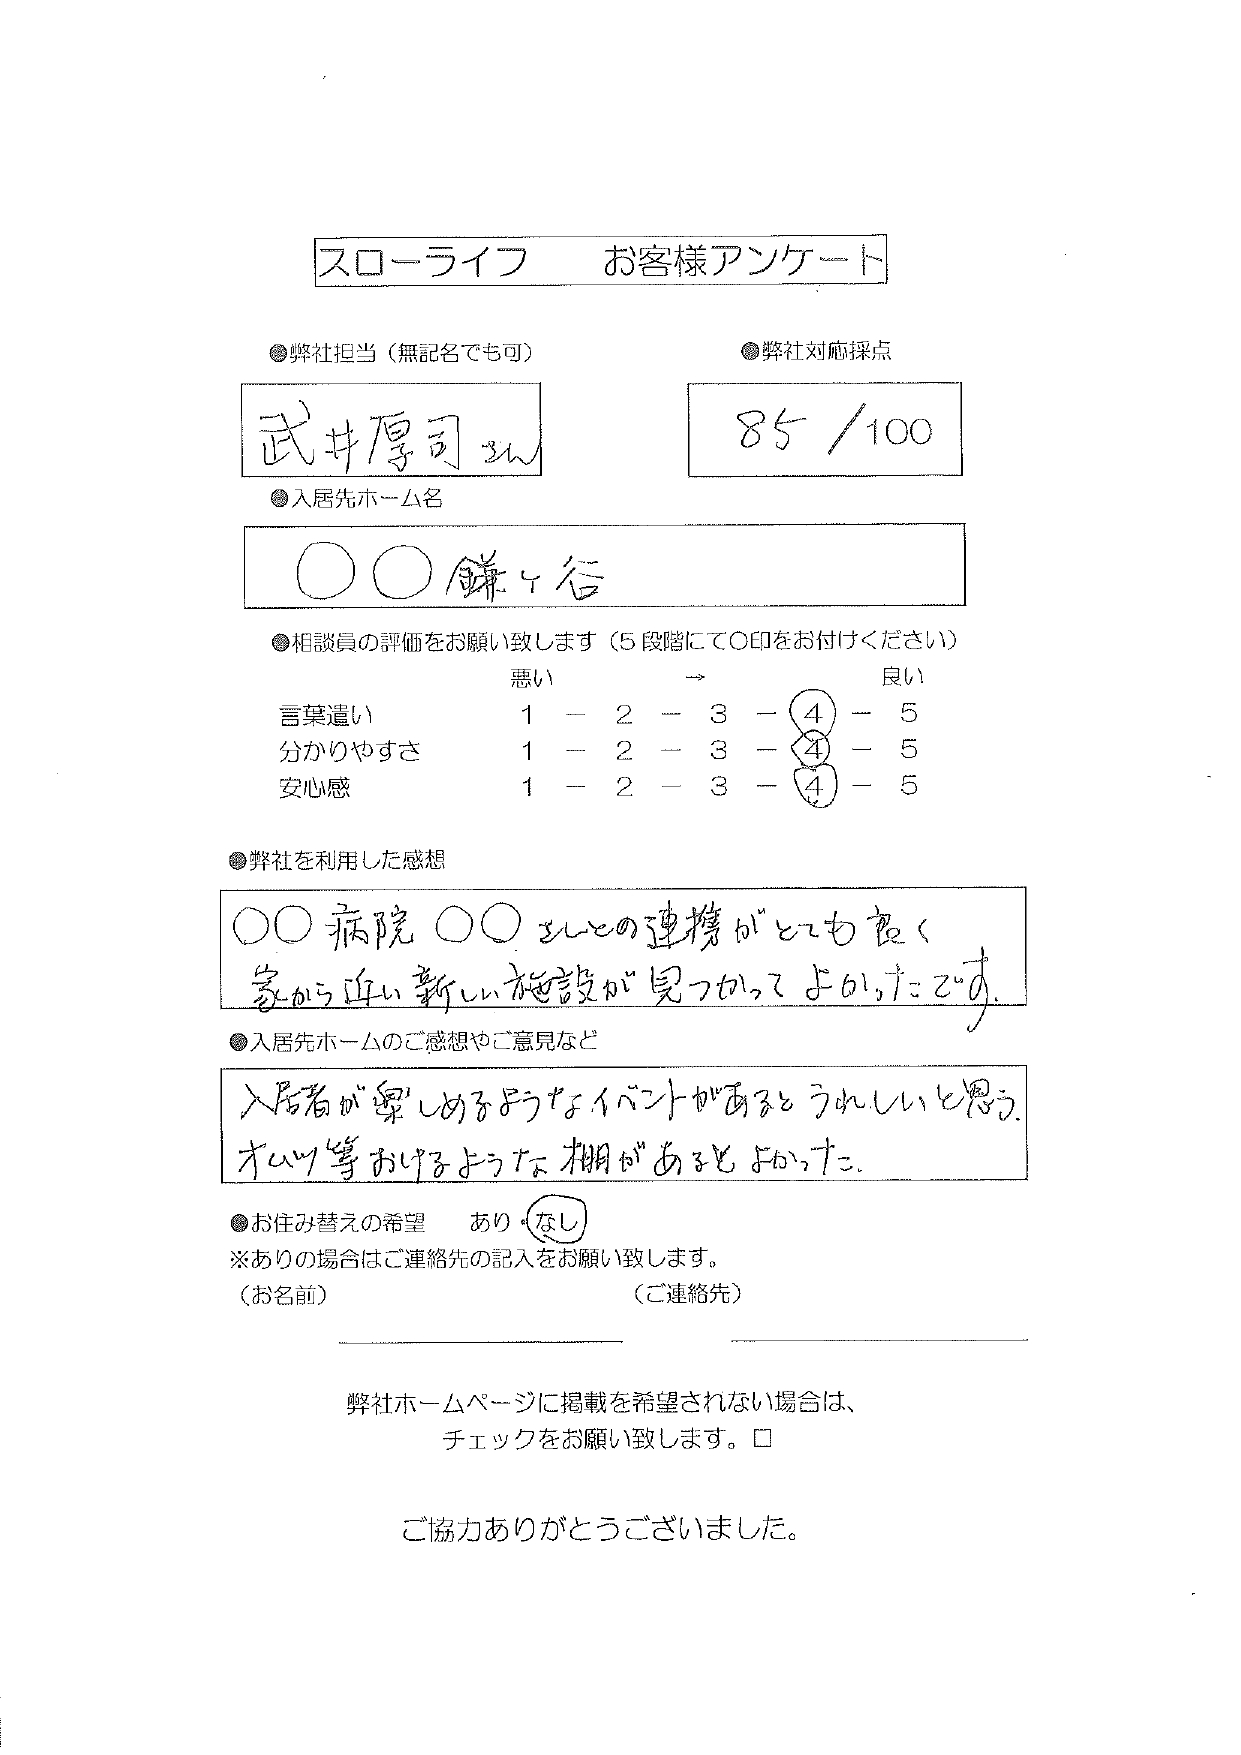 スローライフ　　お客様アンケート
●弊社担当（無記名でも可）　　●弊社対応採点
武井厚司さん　　85／100
●入居先ホーム名
〇〇鎌ヶ谷
●相談員の評価をお願い致します（5段階にて〇印をお付けください）
悪い　　→　　良い
言葉遣い　1　－　2　－　3　－　4　－　5
分かりやすさ　1　－　2　－　3　－　4　－　5
安心感　1　－　2　－　3　－　4　－　5
●弊社を利用した感想
〇〇病院〇〇さんとの連携がとても良く
家から近い新しい施設が見つかってよかったです。
●入居先ホームのご感想やご意見など
入居者が楽しめるようなイベントがあるとうれしいと思う。
オムツ等おけるような棚があるとよかった。
●お住み替えの希望　　あり・なし
※ありの場合はご連絡先の記入をお願い致します。
（お名前）　　（ご連絡先）
弊社ホームページに掲載を希望されない場合は、
チェックをお願い致します。□
ご協力ありがとうございました。